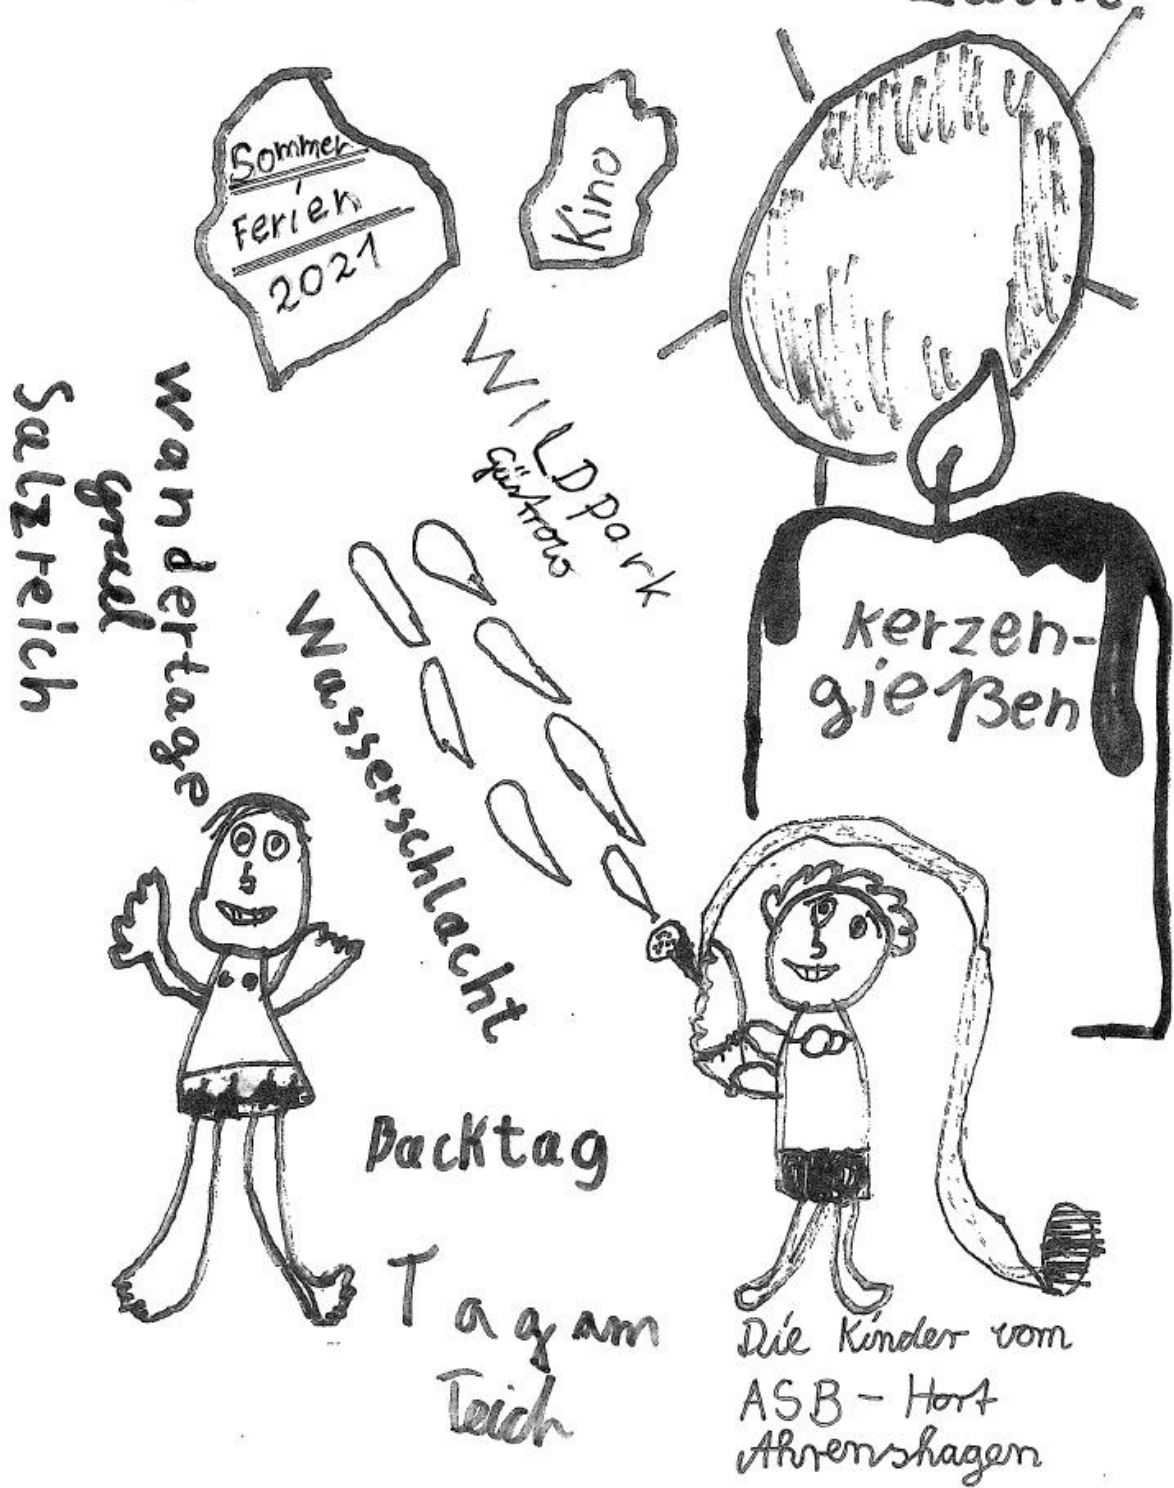 Sommer
Ferien
2021
Kino
WILDpark
Güstrow
wandertage
Salzreich
Wasserschlacht
kerzen-
gießen
Backtag
Tag am
Teich
Die Kinder vom
ASB - Hort
Ahrenshagen